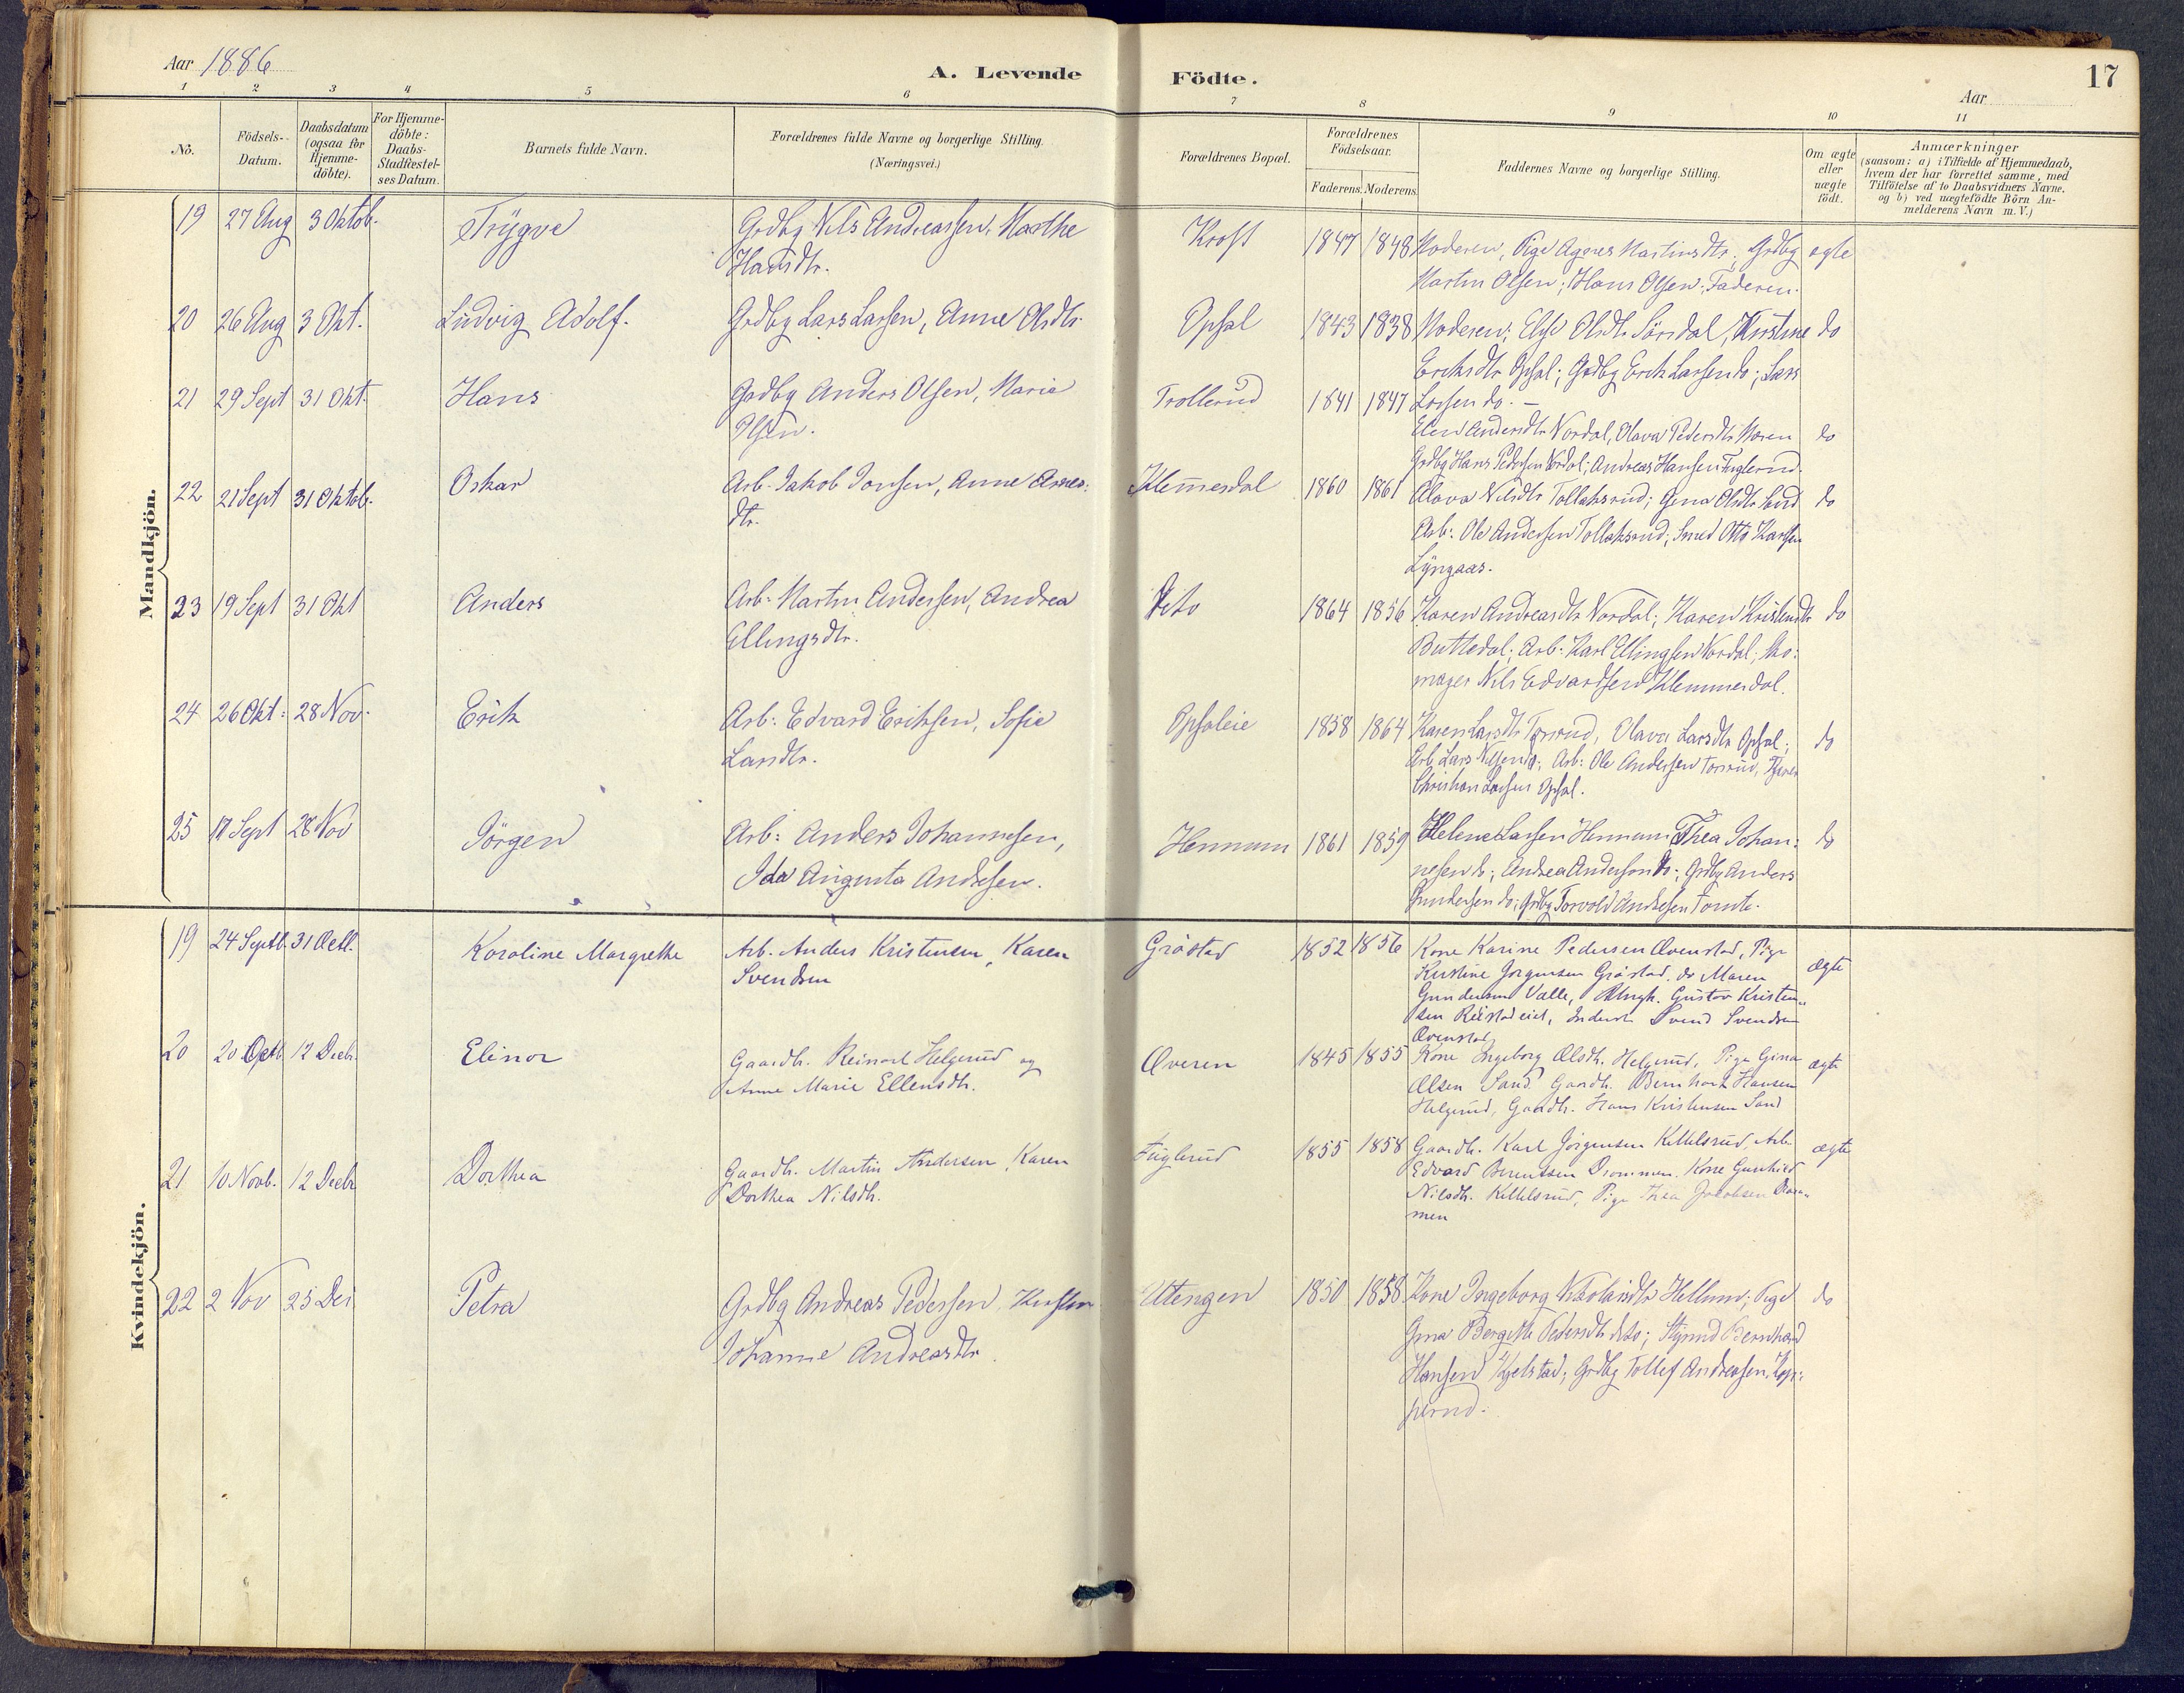 Aar 1886
A. Levende Födte.
17
Aar
1 2 3 4 5 6 7 8 9 10 11
No.
Födsels-Datum.
Daabsdatum (ogsaa for Hjemme-döbte).
For Hjemme-döbte: Daabs-Stadfæstel-ses Datum.
Barnets fulde Navn.
Forældrenes fulde Navne og borgerlige Stilling. (Næringsvei.)
Forældrenes Bopæl.
Forældrenes Födselsaar.
Faderens. Moderens.
Faddernes Navne og borgerlige Stilling.
Om ægte eller uægte födt.
Anmærkninger
(saasom: a) i Tilfælde af Hjemmedaab,
hvem der har forrettet samme, med
Tilföielse af to Daabsvidners Navne.
og b) ved uægtefödte Börn An-
melderens Navn m.V.)
Mandkjön.
19 27 Aug 3 Oktob. Trÿgve Grdbg Nils Andreassen, Marthe Kroft 1847 1848 Moderen, Pige Agnes Martinsdtr; Grdbg ægte
Hansdtr. Martin Olsen; Hans Olsen; Faderen.
20 26 Aug 3 Okt. Ludvig Adolf. Grdbg Lars Larsen, Anne Olsdtr Opsal 1843 1838 Moderen; Else Olsdtr Sörsdal, Kristine do
Eriksdtr Opsal; Grdbg Erik Larsen do; Lars
21 29 Sept 31 Okt. Hans Grdbg Anders Olsen, Marie Trollerud 1841 1847 Larsen do. —
Olsen. Andersdtr Nordal, Olava Pedersdtr Moren do
Grdbg Hans Pedersen Nordal; Andreas Hansen Fuglerud.
22 21 Sept 31 Oktob. Oskar Arb. Jakob Jonsen, Anne Klemmesdal 1860 1861 Olava Nilsdtr Tollaksrud; Gina Olsdtr Sand do
dtr. Arb: Ole Andersen Tollaksrud; Smed Otto Karlsen
Lyngaas.
23 19 Sept 31 Okt Anders Arb: Martin Andersen, Andrea Dito 1864 1856 Karen Andreasdtr Nordal; Karen do
Ellingsdtr. Buttedal; Arb: Karl Ellingsen Nordal; Sko-
mager Nils Edvardsen Klemmesdal.
24 26 Okt: 28 Nov. Erik Arb: Edvard Eriksen, Sofie Opsaleie 1858 1864 Karen Larsdtr Torsrud, Olava Larsdtr Opsal; do
Larsdtr. Arb. Lars Nilsen do; Arb: Ole Andersen Torsrud,
Christian Larsen Opsal.
25 17 Sept 28 Nov Jörgen Arb: Anders Johannesen, Hennum 1861 1859 Helene Larsen Hennum, Thea Johan- do
Ida Augusta Andersen. nesen do; Andrea Andersen do; Grdbg Anders
Gundersen do; Grdbg Torvald Andersen Tomte.
Kvindekjön.
19 24 Septb. 31 Octb. Karoline Margrethe Arb. Anders Kristensen, Karen Gråstad 1852 1856 Kone Karine Pedersen Qvenstad, Pige ægte
Svendsen Kirstine Jörgensen Gråstad, do Maren
Gundersen Valle, Ungk. Gustav Kristen-
sen, Inderst Svend Svendsen
Qvenstad
20 20 Octb 12 Decbr. Elinor Gaardbr. Reinart Helgerud og Qveren 1845 1855 Kone Ingeborg Olsdtr. Helgerud, Pige Gina ægte
Anne Marie Ellensdtr. Olsen Sand. Gaardbr. Bernhard Hansen
Helgerud, Gaardbr. Hans Kristensen Sand
21 10 Novb. 12 Decbr Dorthea Gaardbr. Martin Andersen, Karen Fuglerud 1855 1858 Gaardbr. Karl Jörgensen Kittelsrud, Arb. ægte
Dorthea Nilsdtr. Edvard Berentsen Drammen. Kone Gunhild
Nilsdtr. Kittelsrud, Pige Thea Jakobsen Dram-
men
22 2 Nov 25 Dec Petra Grdbg Andreas Pedersen, Kirsten Utengen 1850 1858 Kone Ingeborg Nikolaisdtr Hellum; Pige do
Johanne Andreasdtr. Gina Bergitte Pedersdtr dito; Styrmd Bernhard
Hansen Kjelstad; Grdbg Tollef Andreasen